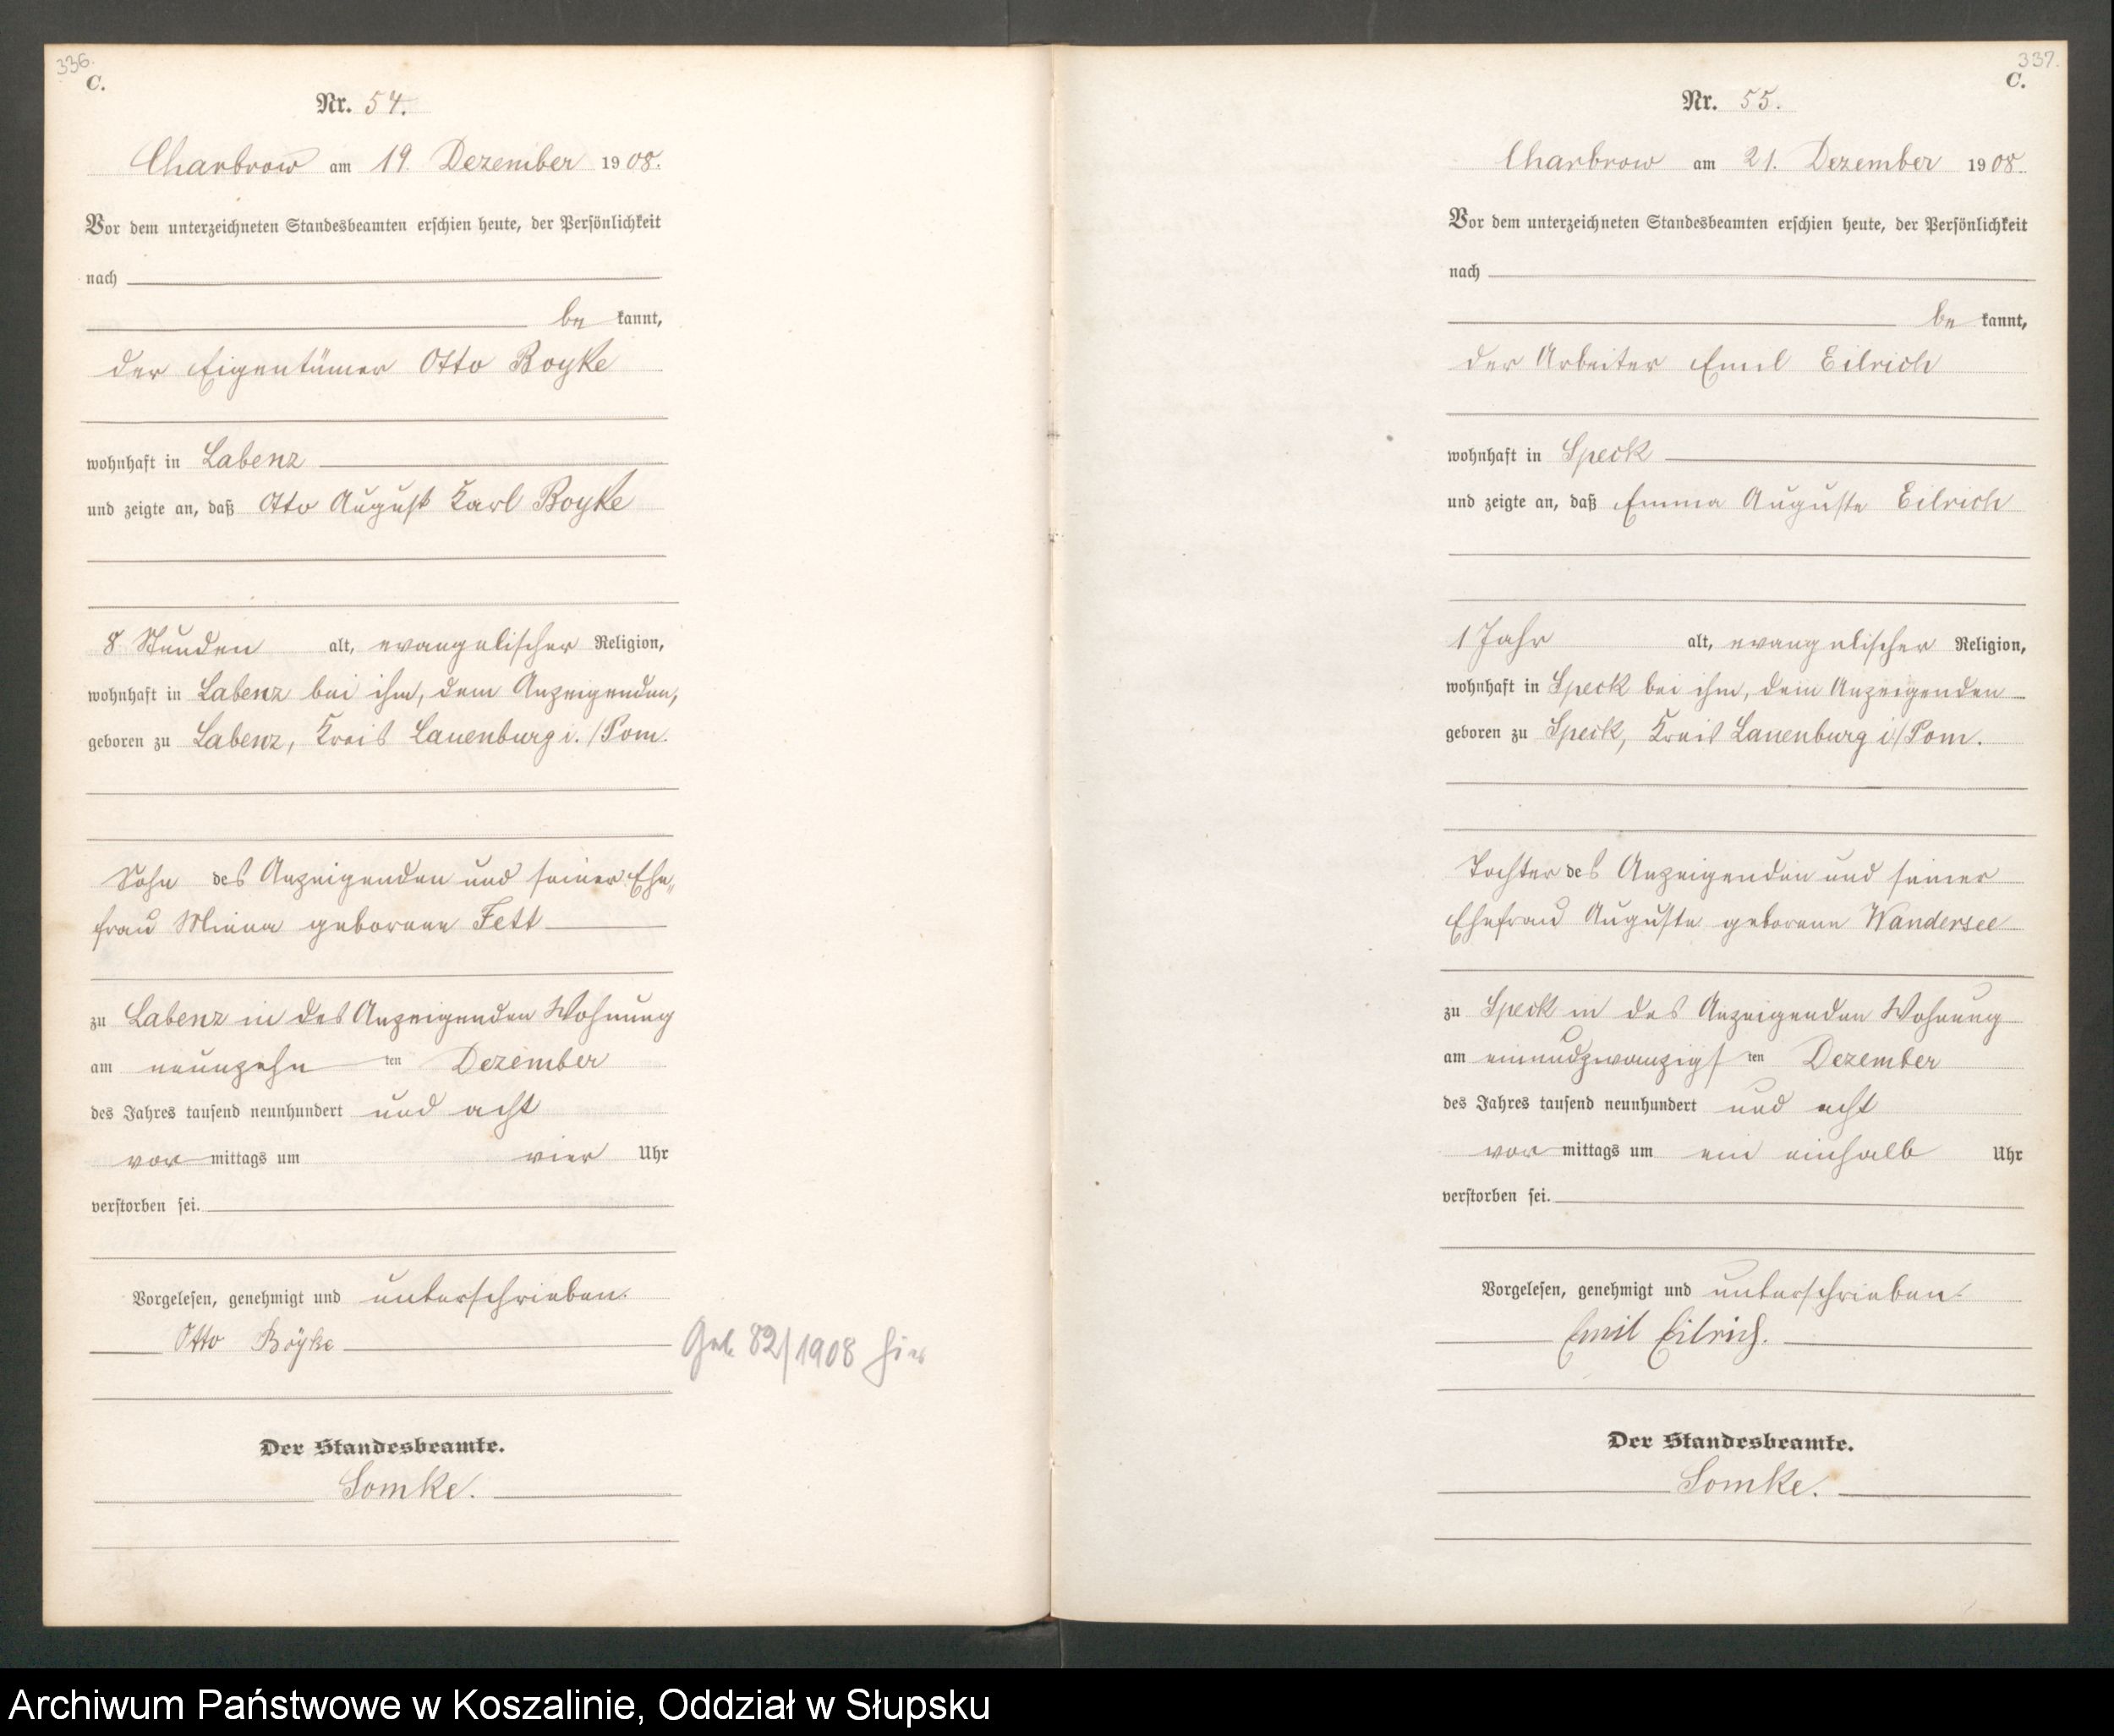 336.
C.
Nr. 54.
Charbrow am 19. Dezember 1908.
Vor dem unterzeichneten Standesbeamten erschien heute, der Persönlichkeit
nach
be kannt,
der Eigentümer Otto Boyke
wohnhaft in Labenz
und zeigte an, daß Otto August Karl Boyke
8 Stunden alt, evangelischer Religion,
wohnhaft in Labenz bei ihm, dem Anzeigenden,
geboren zu Labenz, Kreis Lauenburg i./Pom.
Sohn des Anzeigenden und seiner Ehe„
frau Minna geborene Fett
zu Labenz in des Anzeigenden Wohnung
am neunzehn ten Dezember
des Jahres tausend neunhundert und acht
vor mittags um vier Uhr
verstorben sei.
Vorgelesen, genehmigt und unterschrieben.
Otto Böyke
Geb. 82/1908 hier
Der Standesbeamte.
Somke.
337.
C.
Nr. 55.
Charbrow am 21. Dezember 1908.
Vor dem unterzeichneten Standesbeamten erschien heute, der Persönlichkeit
nach
be kannt,
der Arbeiter Emil Eilrich
wohnhaft in Speck
und zeigte an, daß Emma Auguste Eilrich
1 Jahr alt, evangelischer Religion,
wohnhaft in Speck bei ihm, dem Anzeigenden
geboren zu Speck, Kreis Lauenburg i/Pom.
Tochter des Anzeigenden und seiner
Ehefrau Auguste geborene Wandersee
zu Speck in des Anzeigenden Wohnung
am einundzwanzigs ten Dezember
des Jahres tausend neunhundert und acht
vor mittags um ein einhalb Uhr
verstorben sei.
Vorgelesen, genehmigt und unterschrieben.
Emil Eilrich.
Der Standesbeamte.
Somke.
Archiwum Państwowe w Koszalinie, Oddział w Słupsku